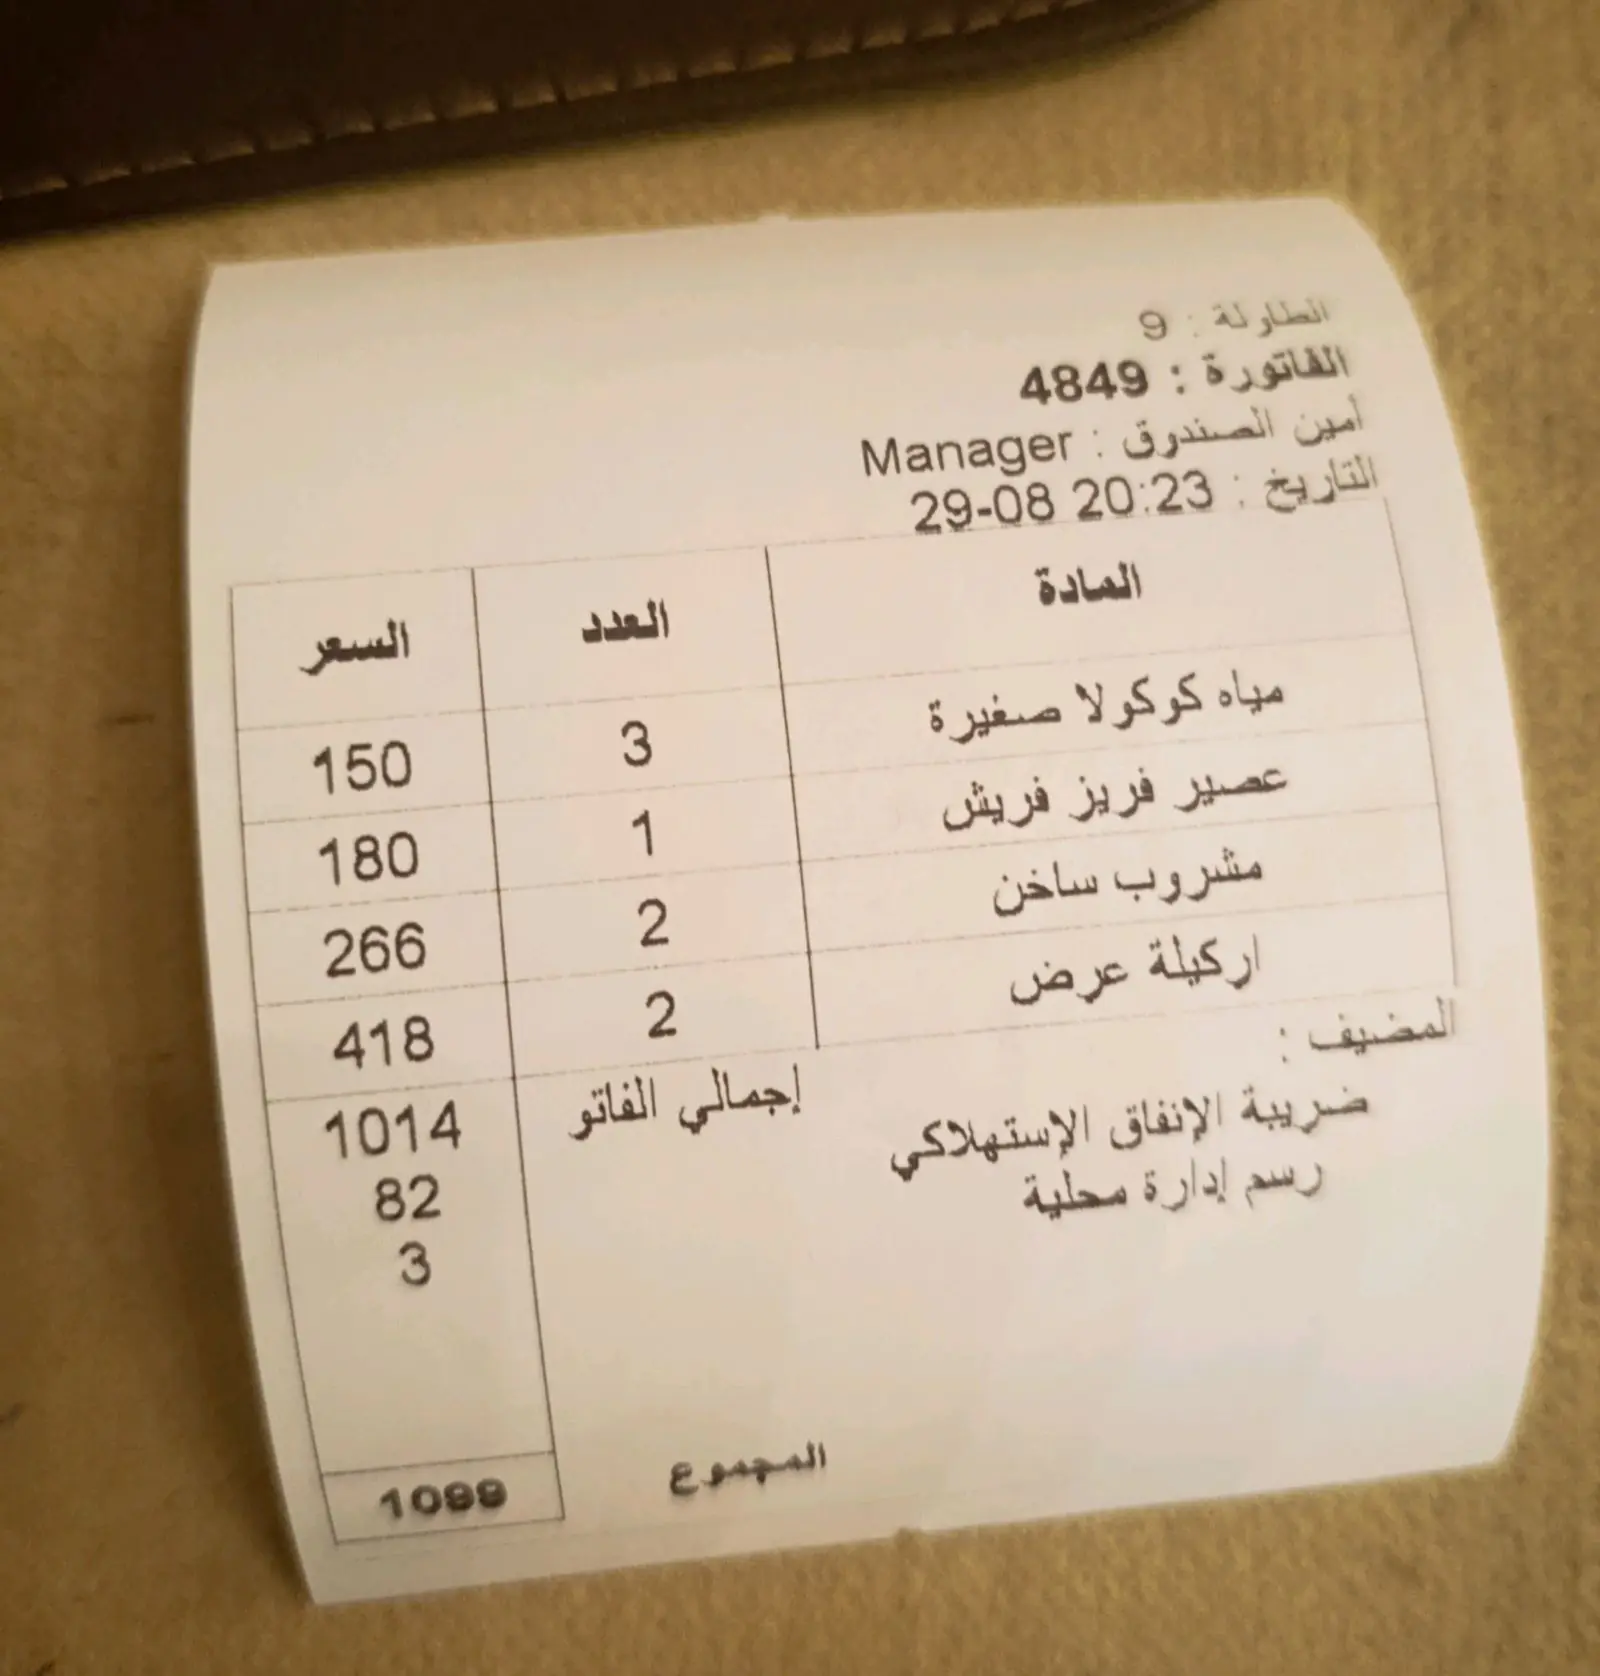 الطاولة : 9
الفاتورة : 4849
أمين الصندوق : Manager
التاريخ : 29-08 20:23
المادة العدد السعر
مياه كوكولا صغيرة 3 150
عصير فريز فريش 1 180
مشروب ساخن 2 266
اركيلة عرض 2 418
المضيف :
إجمالي الفاتو 1014
ضريبة الإنفاق الإستهلاكي 82
رسم إدارة محلية 3
المجموع 1099